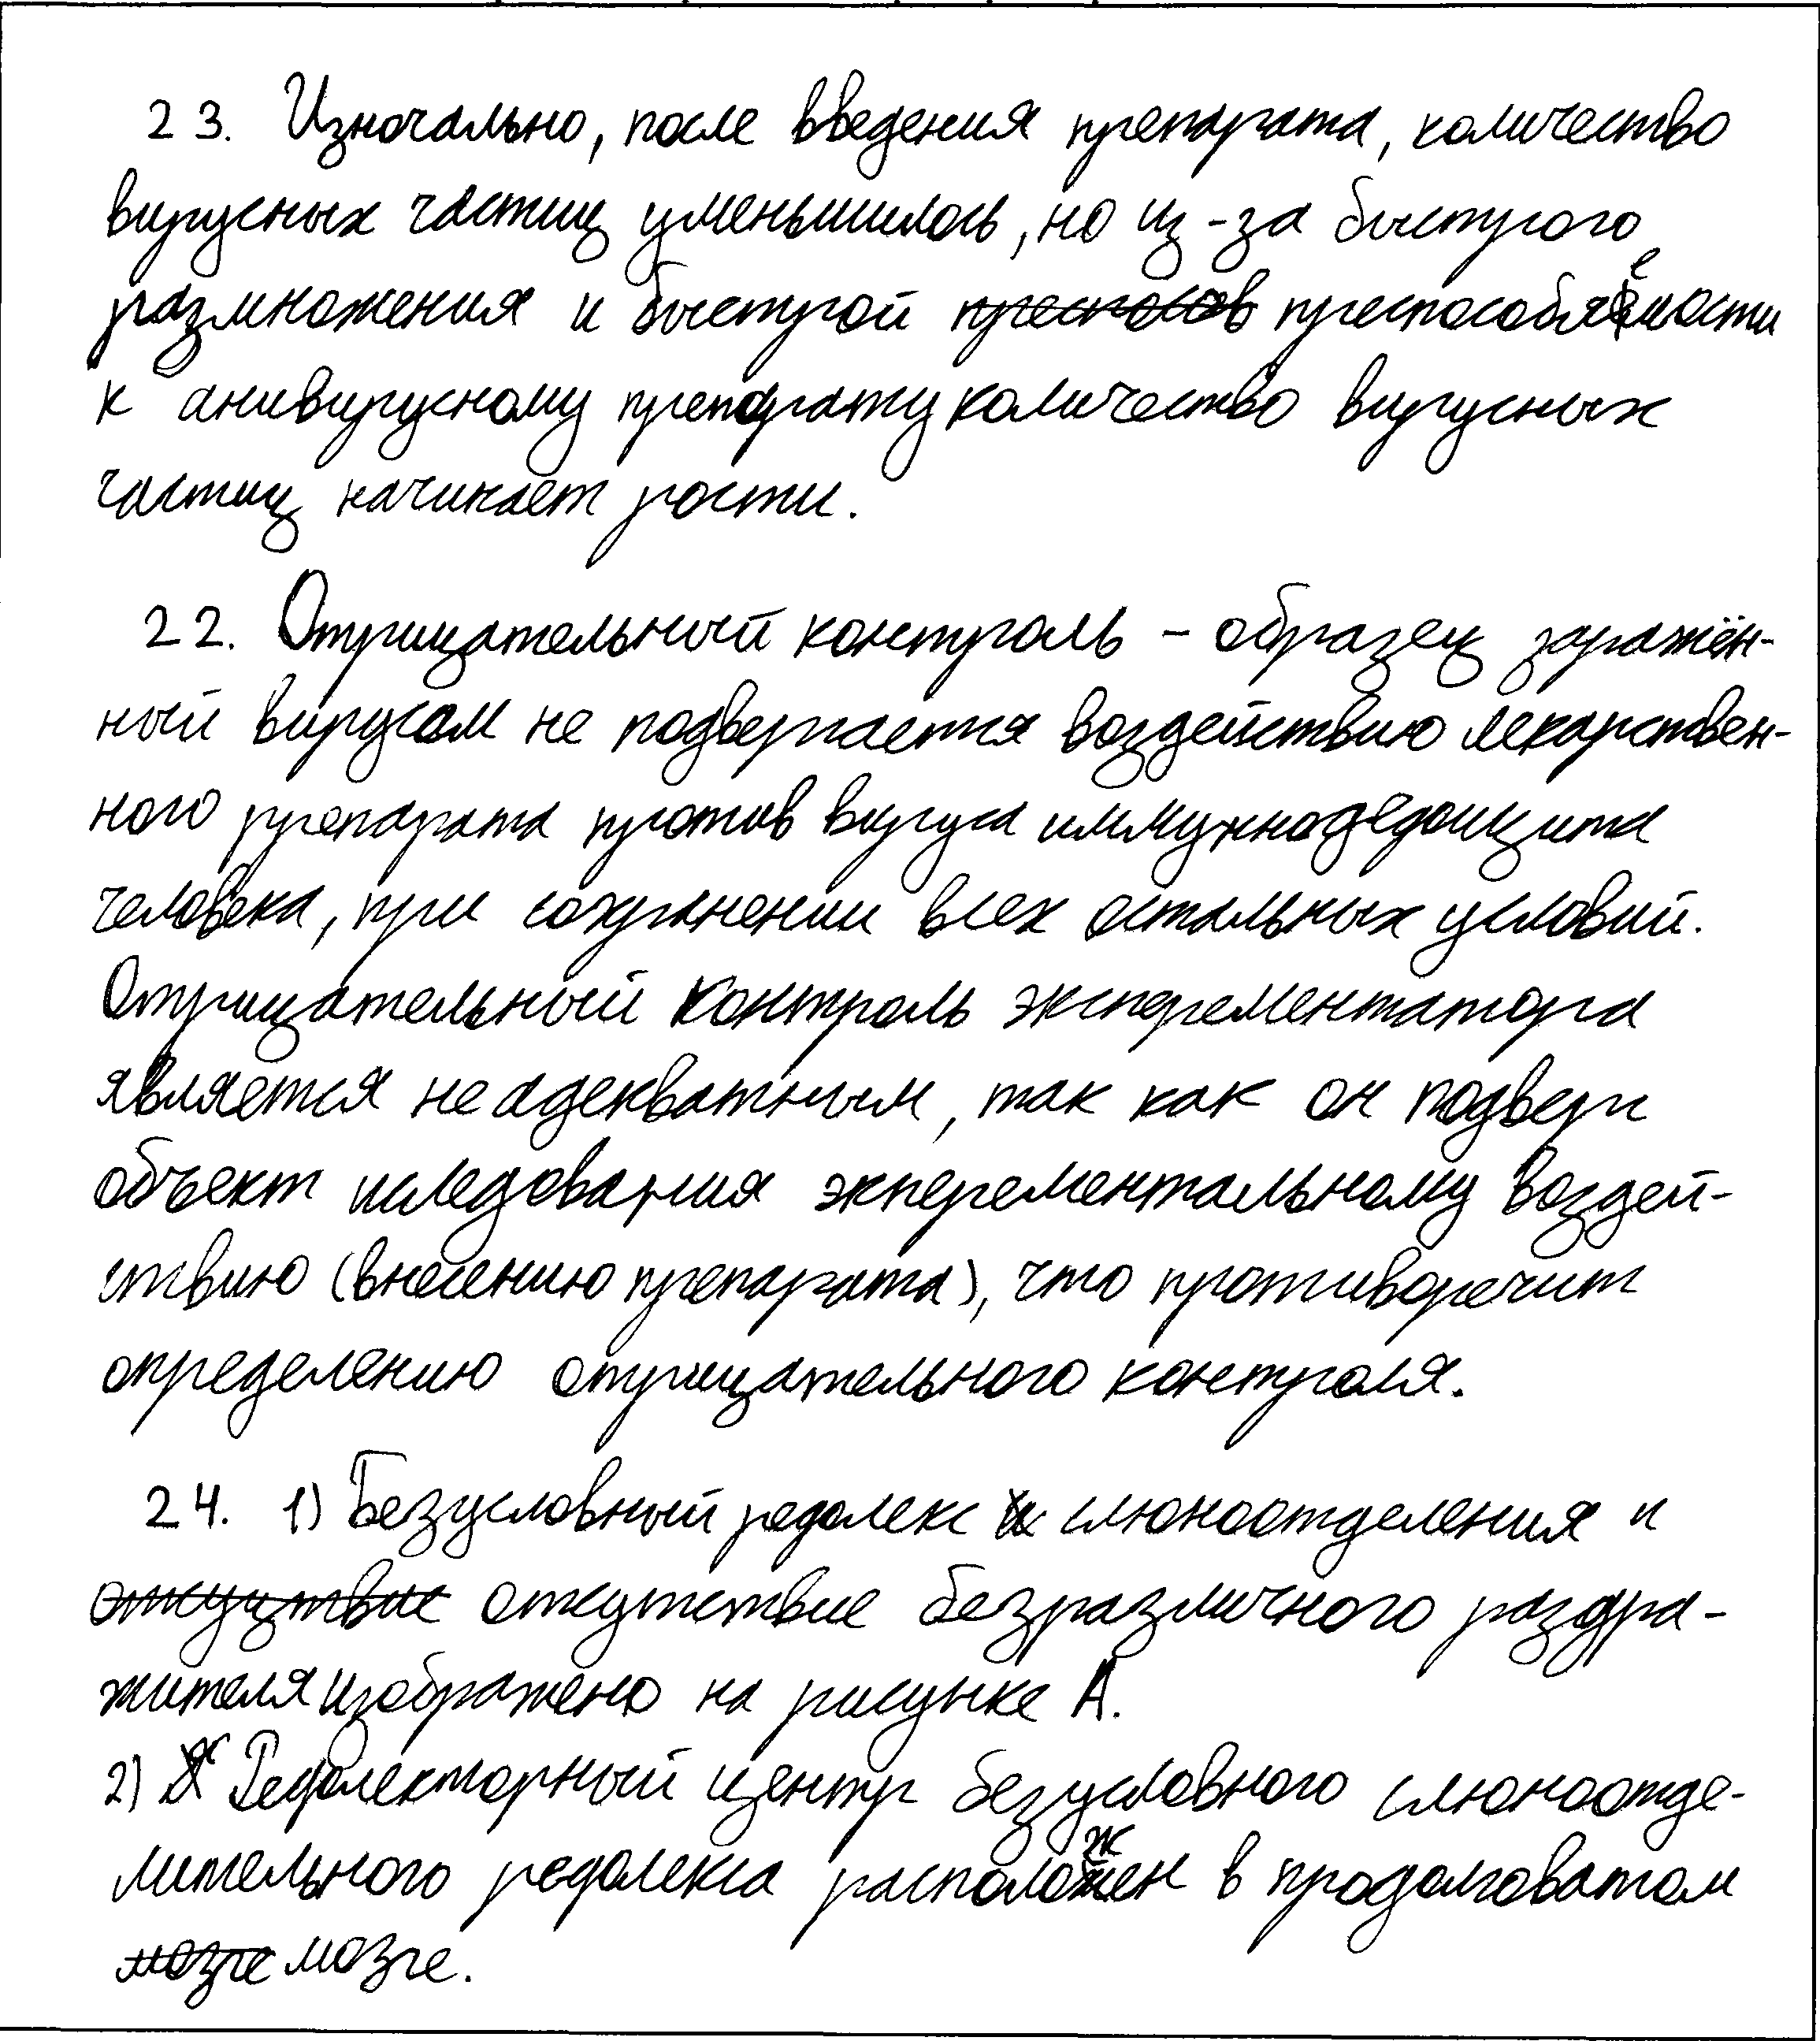 23. Изночально, после введения препарата, количество
вирусных частиц уменьшилось, но из-за быстрого
размножения и быстрой преспособ преспособляемости
к анивирусному препарату количество вирусных
частиц начинает рости.
22. Отрицательный контроль - образец заражён-
ный вирусом не подвергается воздействию лекарствен-
ного препарата против вируса иммунодефицита
человека, при сохранении всех остальных условий.
Отрицательный контроль эксперементатора
является неадекватным, так как он подверг
объект иследования экперементальному воздей-
ствию (внесению препарата), что противоречит
определению отрицательного контроля.
24. 1) Безусловный рефлекс слюноотделения и
отсуцтвие отсутствие безразличного раздра-
жителя изображено на рисунке А.
2) Рефлекторный центр безусловного слюноотде-
лительного рефлекса расположен в продолговатом
мозге мозге.